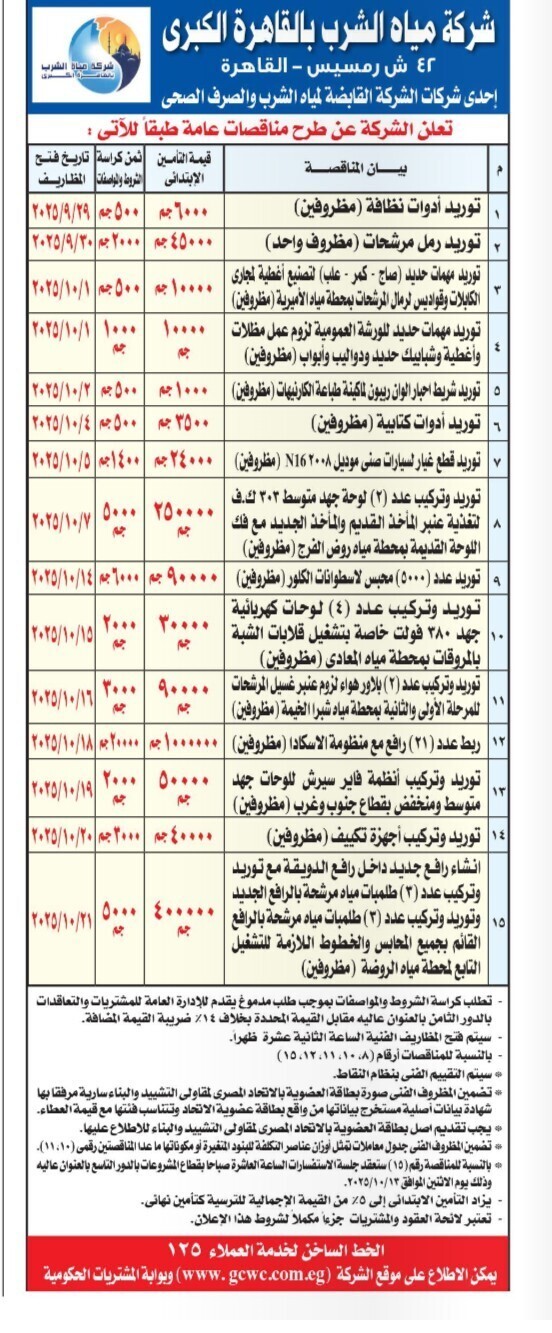 شركة مياه الشرب بالقاهرة الكبرى
شركة مياه الشرب
بالقاهرة الكبرى
٤٢ ش رمسيس - القاهرة
إحدى شركات الشركة القابضة لمياه الشرب والصرف الصحى
تعلن الشركة عن طرح مناقصات عامة طبقاً للآتى :
م بيـــان المناقصـــة قيمة التأمين الإبتدائى ثمن كراسة الشروط والمواصفات تاريخ فتح المظاريف
١ توريد أدوات نظافة (مظروفين) ٦٠٠٠ جم ٥٠٠ جم ٢٠٢٥/٩/٢٩
٢ توريد رمل مرشحات (مظروف واحد) ٤٥٠٠٠ جم ٢٠٠٠ جم ٢٠٢٥/٩/٣٠
٣ توريد مهمات حديد (صاج - كمر - علب) لتصنيع أغطية لمجارى
الكابلات وقواديس لرمال المرشحات بمحطة مياه الأميرية (مظروفين) ١٠٠٠٠ جم ٥٠٠ جم ٢٠٢٥/١٠/١
٤ توريد مهمات حديد للورشة العمومية لزوم عمل مظلات
وأغطية وشبابيك حديد ودواليب وأبواب (مظروفين) ١٠٠٠٠ جم ١٠٠٠ جم ٢٠٢٥/١٠/١
٥ توريد شريط احبار الوان ريبون لماكينة طباعة الكارنيهات (مظروفين) ١٠٠٠ جم ٥٠٠ جم ٢٠٢٥/١٠/٢
٦ توريد أدوات كتابية (مظروفين) ٣٥٠٠ جم ٥٠٠ جم ٢٠٢٥/١٠/٤
٧ توريد قطع غيار لسيارات صنى موديل ٢٠٠٨ N16 (مظروفين) ٢٤٠٠٠ جم ١٤٠٠ جم ٢٠٢٥/١٠/٥
٨ توريد وتركيب عدد (٢) لوحة جهد متوسط ٣٠٣ ك.ف
لتغذية عنبر المأخذ القديم والمأخذ الجديد مع فك
اللوحة القديمة بمحطة مياه روض الفرج (مظروفين) ٢٥٠٠٠٠ جم ٥٠٠٠ جم ٢٠٢٥/١٠/٧
٩ توريد عدد (٥٠٠٠) محبس لاسطوانات الكلور (مظروفين) ٩٠٠٠٠٠ جم ٦٠٠٠ جم ٢٠٢٥/١٠/١٤
١٠ توريد وتركيب عدد (٤) لوحات كهربائية
جهد ٣٨٠ فولت خاصة بتشغيل قلابات الشبة
بالمروقات بمحطة مياه المعادى (مظروفين) ٣٠٠٠٠ جم ٢٠٠٠ جم ٢٠٢٥/١٠/١٥
١١ توريد وتركيب عدد (٢) بلاور هواء لزوم عنبر غسيل المرشحات
للمرحلة الأولى والثانية بمحطة مياه شبرا الخيمة (مظروفين) ٩٠٠٠٠ جم ٣٠٠٠ جم ٢٠٢٥/١٠/١٦
١٢ ربط عدد (٢١) رافع مع منظومة الاسكادا (مظروفين) ١٠٠٠٠٠٠ جم ٢٠٠٠٠ جم ٢٠٢٥/١٠/١٨
١٣ توريد وتركيب أنظمة فاير سيرش للوحات جهد
متوسط ومنخفض بقطاع جنوب وغرب (مظروفين) ٥٠٠٠٠ جم ٢٠٠٠ جم ٢٠٢٥/١٠/١٩
١٤ توريد وتركيب أجهزة تكييف (مظروفين) ٤٠٠٠٠ جم ٣٠٠٠ جم ٢٠٢٥/١٠/٢٠
١٥ انشاء رافع جديد داخل رافع الدويقة مع توريد
وتركيب عدد (٣) طلمبات مياه مرشحة بالرافع الجديد
وتوريد وتركيب عدد (٣) طلمبات مياه مرشحة بالرافع
القائم بجميع المحابس والخطوط اللازمة للتشغيل
التابع لمحطة مياه الروضة (مظروفين) ٤٠٠٠٠٠ جم ٥٠٠٠ جم ٢٠٢٥/١٠/٢١
- تطلب كراسة الشروط والمواصفات بموجب طلب مدموغ يقدم للإدارة العامة للمشتريات والتعاقدات
بالدور الثامن بالعنوان عاليه مقابل القيمة المحددة بخلاف ١٤٪ ضريبة القيمة المضافة.
- سيتم فتح المظاريف الفنية الساعة الثانية عشرة ظهراً.
- بالنسبة للمناقصات أرقام (٨، ١٠، ١١، ١٢، ١٥)
* سيتم التقييم الفنى بنظام النقاط.
* تضمين المظروف الفنى صورة بطاقة العضوية بالاتحاد المصرى لمقاولى التشييد والبناء سارية مرفقا بها
شهادة بيانات أصلية مستخرج بياناتها من واقع بطاقة عضوية الاتحاد وتتناسب فئتها مع قيمة العطاء.
* يجب تقديم اصل بطاقة العضوية بالاتحاد المصرى لمقاولى التشييد والبناء للاطلاع عليها.
* تضمين المظروف الفنى جدول معاملات تمثل أوزان عناصر التكلفة للبنود المتغيرة أو مكوناتها ما عدا المناقصتين رقمى (١٠، ١١).
* بالنسبة للمناقصة رقم (١٥) ستعقد جلسة الاستفسارات الساعة العاشرة صباحا بقطاع المشروعات بالدور التاسع بالعنوان عاليه
وذلك يوم الاثنين الموافق ٢٠٢٥/١٠/١٣.
- يزاد التأمين الابتدائى إلى ٥٪ من القيمة الإجمالية للترسية كتأمين نهائى.
- تعتبر لائحة العقود والمشتريات جزءاً مكملاً لشروط هذا الإعلان.
الخط الساخن لخدمة العملاء ١٢٥
يمكن الاطلاع على موقع الشركة (www.gcwc.com.eg) وبوابة المشتريات الحكومية